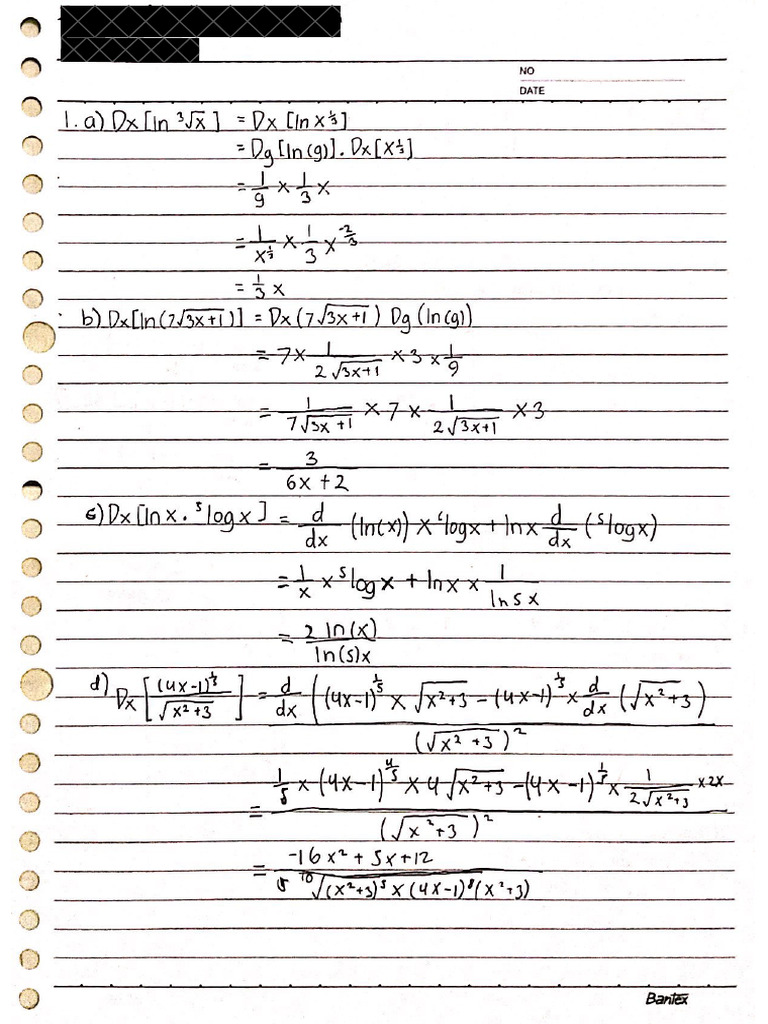 NO
DATE
1. a) Dx [ln ³√x] = Dx [ln x^⅓]
= Dg [ln(g)] . Dx [x^⅓]
= 1/g × 1/3 x
= 1/x^⅓ × 1/3 x^(-2/3)
= 1/3 x
b) Dx [ln (7√3x+1)] = Dx (7√3x+1) Dg (ln(g))
= 7 × 1/(2√3x+1) × 3 × 1/g
= 1/(7√3x+1) × 7 × 1/(2√3x+1) × 3
= 3/(6x+2)
c) Dx [ln x . ⁵log x] = d/dx (ln(x)) × ⁶log x + ln x d/dx (⁵log x)
= 1/x × ⁵log x + ln x × 1/(ln 5 x)
= 2 ln(x)/(ln(5)x)
d) Dx [(4x-1)^(1/5)/√x²+3] = d/dx ((4x-1)^(1/5) × √x²+3 - (4x-1)^(1/5) × d/dx (√x²+3)
(√x²+3)²
= 1/5 × (4x-1)^(4/5) × 4√x²+3 - (4x-1)^(1/5) × 1/(2√x²+3) × 2x
(√x²+3)²
= -16x² + 5x + 12
5 ¹⁰√(x²+3)⁵ × (4x-1)⁸ (x²+3)
Bantex